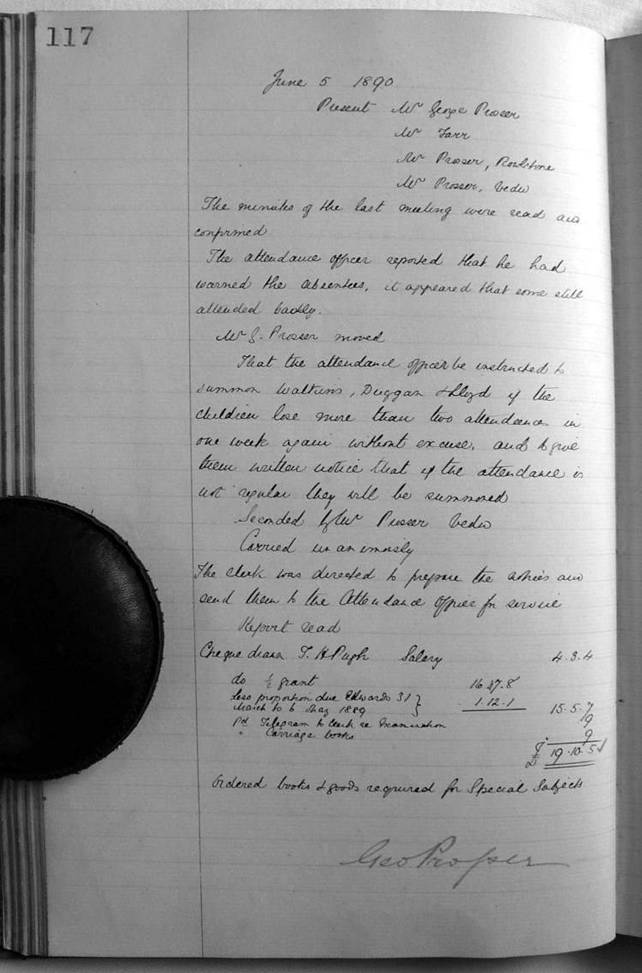 117
June 5 1890
Present Mr George Prosser
Mr Farr
Mr Prosser, Rowlstone
Mr Prosser, Vedw
The minutes of the last meeting were read and
confirmed
The attendance officer reported that he had
warned the absentees, it appeared that some still
attended badly.
Mr G. Prosser moved
That the attendance officer be instructed to
summon Watkins, Duggan & Lloyd if the
children lose more than two attendances in
one week again without excuse, and to give
them written notice that if the attendance is
not regular they will be summoned
Seconded by Mr Prosser Vedw
Carried unanimously
The clerk was directed to prepare the notices and
send them to the Attendance Officer for service
Report read
Cheque drawn T. H Pugh Salary 4.3.4
do ½ grant 16.17.8
less proportion due Edwards 31 } 1.12.1
March to 6 May 1889 15.5.7
Pd Telegram to Clerk re Examination 9
" Carriage books 9
£ 19.10.5
Ordered books & goods required for Special Subjects
Geo Prosser